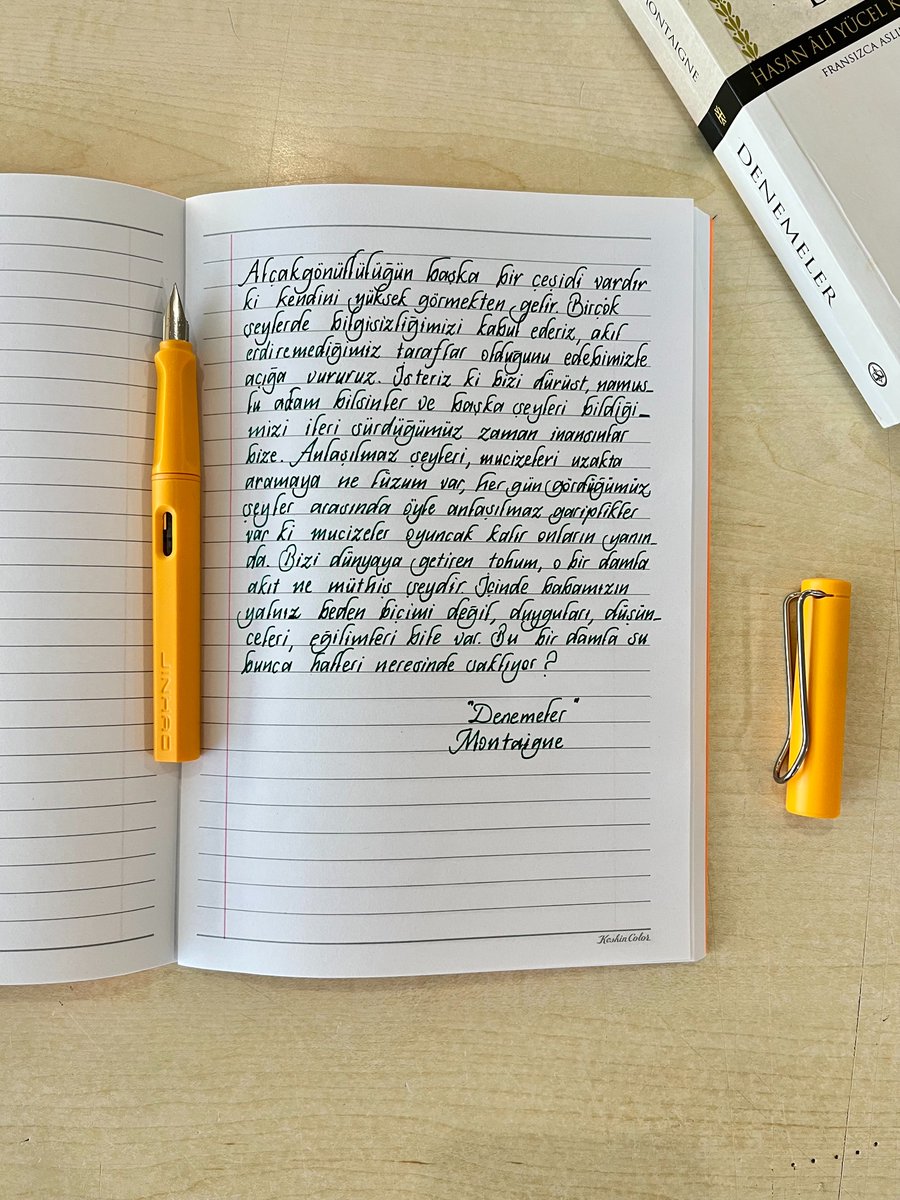 MONTAIGNE
HASAN ÂLİ YÜCEL
FRANSIZCA
DENEMELER
Alçakgönüllülüğün başka bir çeşidi vardır
ki kendini yüksek görmekten gelir. Birçok
şeylerde bilgisizliğimizi kabul ederiz, akıl
erdiremediğimiz taraflar olduğunu edebimizle
açığa vururuz. İsteriz ki bizi dürüst, namus
lu adam bilsinler ve başka şeyleri bildiği_
mizi ileri sürdüğümüz zaman inansınlar
bize. Anlaşılmaz şeyleri, mucizeleri uzakta
aramaya ne lüzum var, her gün gördüğümüz
şeyler arasında öyle anlaşılmaz gariplikler
var ki mucizeler oyuncak kalır onların yanın_
da. Bizi dünyaya getiren tohum, o bir damla
akıt ne müthiş şeydir. İçinde babamızın
yalnız beden biçimi değil, duyguları, düşün_
celeri, eğilimleri bile var. Bu bir damla su
bunca halleri neresinde saklıyor?
"Denemeler"
Montaigne
JINHAO
Keskin Color